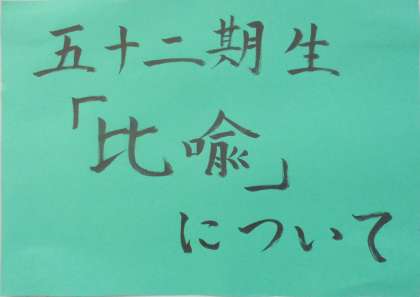 五十二期生
「比喩」
について